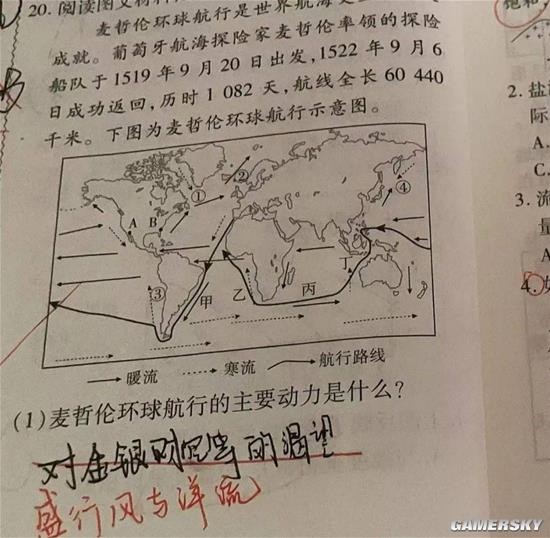 20. 阅读图文材料
麦哲伦环球航行是世界航海史
成就。葡萄牙航海探险家麦哲伦率领的探险
船队于1519年9月20日出发,1522年9月6
日成功返回,历时1 082天,航线全长60 440
千米。下图为麦哲伦环球航行示意图。
① ② ④
A B
③ 甲 乙 丙 丁
暖流 寒流 航行路线
(1)麦哲伦环球航行的主要动力是什么?
对金银财宝等的渴望
盛行风与洋流
2. 盐
际
A.
C.
3. 流
量
A
4.
GAMERSKY